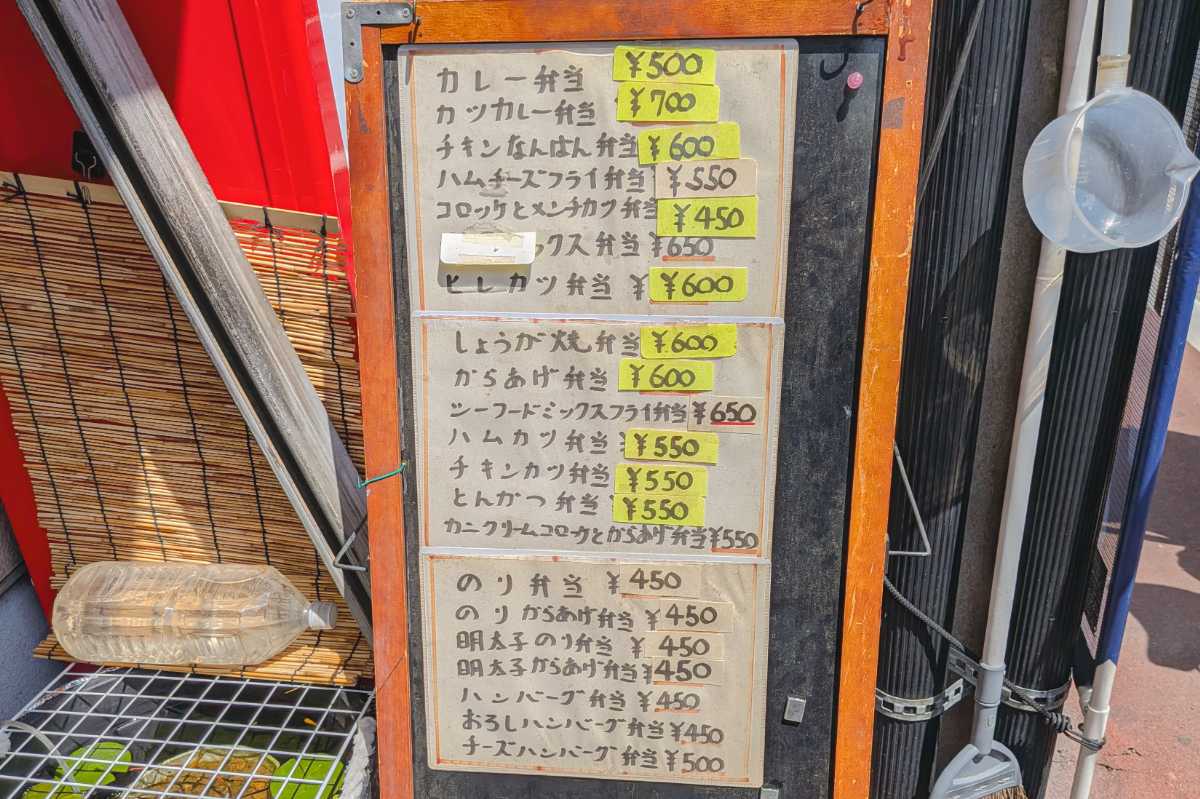 カレー弁当 ¥500
カツカレー弁当 ¥700
チキンなんばん弁当 ¥600
ハムチーズフライ弁当 ¥550
コロッケとメンチカツ弁当 ¥450
ックス弁当 ¥650
ヒレカツ弁当 ¥ ¥600
しょうが焼弁当 ¥600
からあげ弁当 ¥600
シーフードミックスフライ弁当 ¥650
ハムカツ弁当 ¥550
チキンカツ弁当 ¥550
とんかつ弁当 ¥550
カニクリームコロッケとからあげ弁当 ¥550
のり弁当 ¥450
のりからあげ弁当 ¥450
明太子のり弁当 ¥450
明太子からあげ弁当 ¥450
ハンバーグ弁当 ¥450
おろしハンバーグ弁当 ¥450
チーズハンバーグ弁当 ¥500